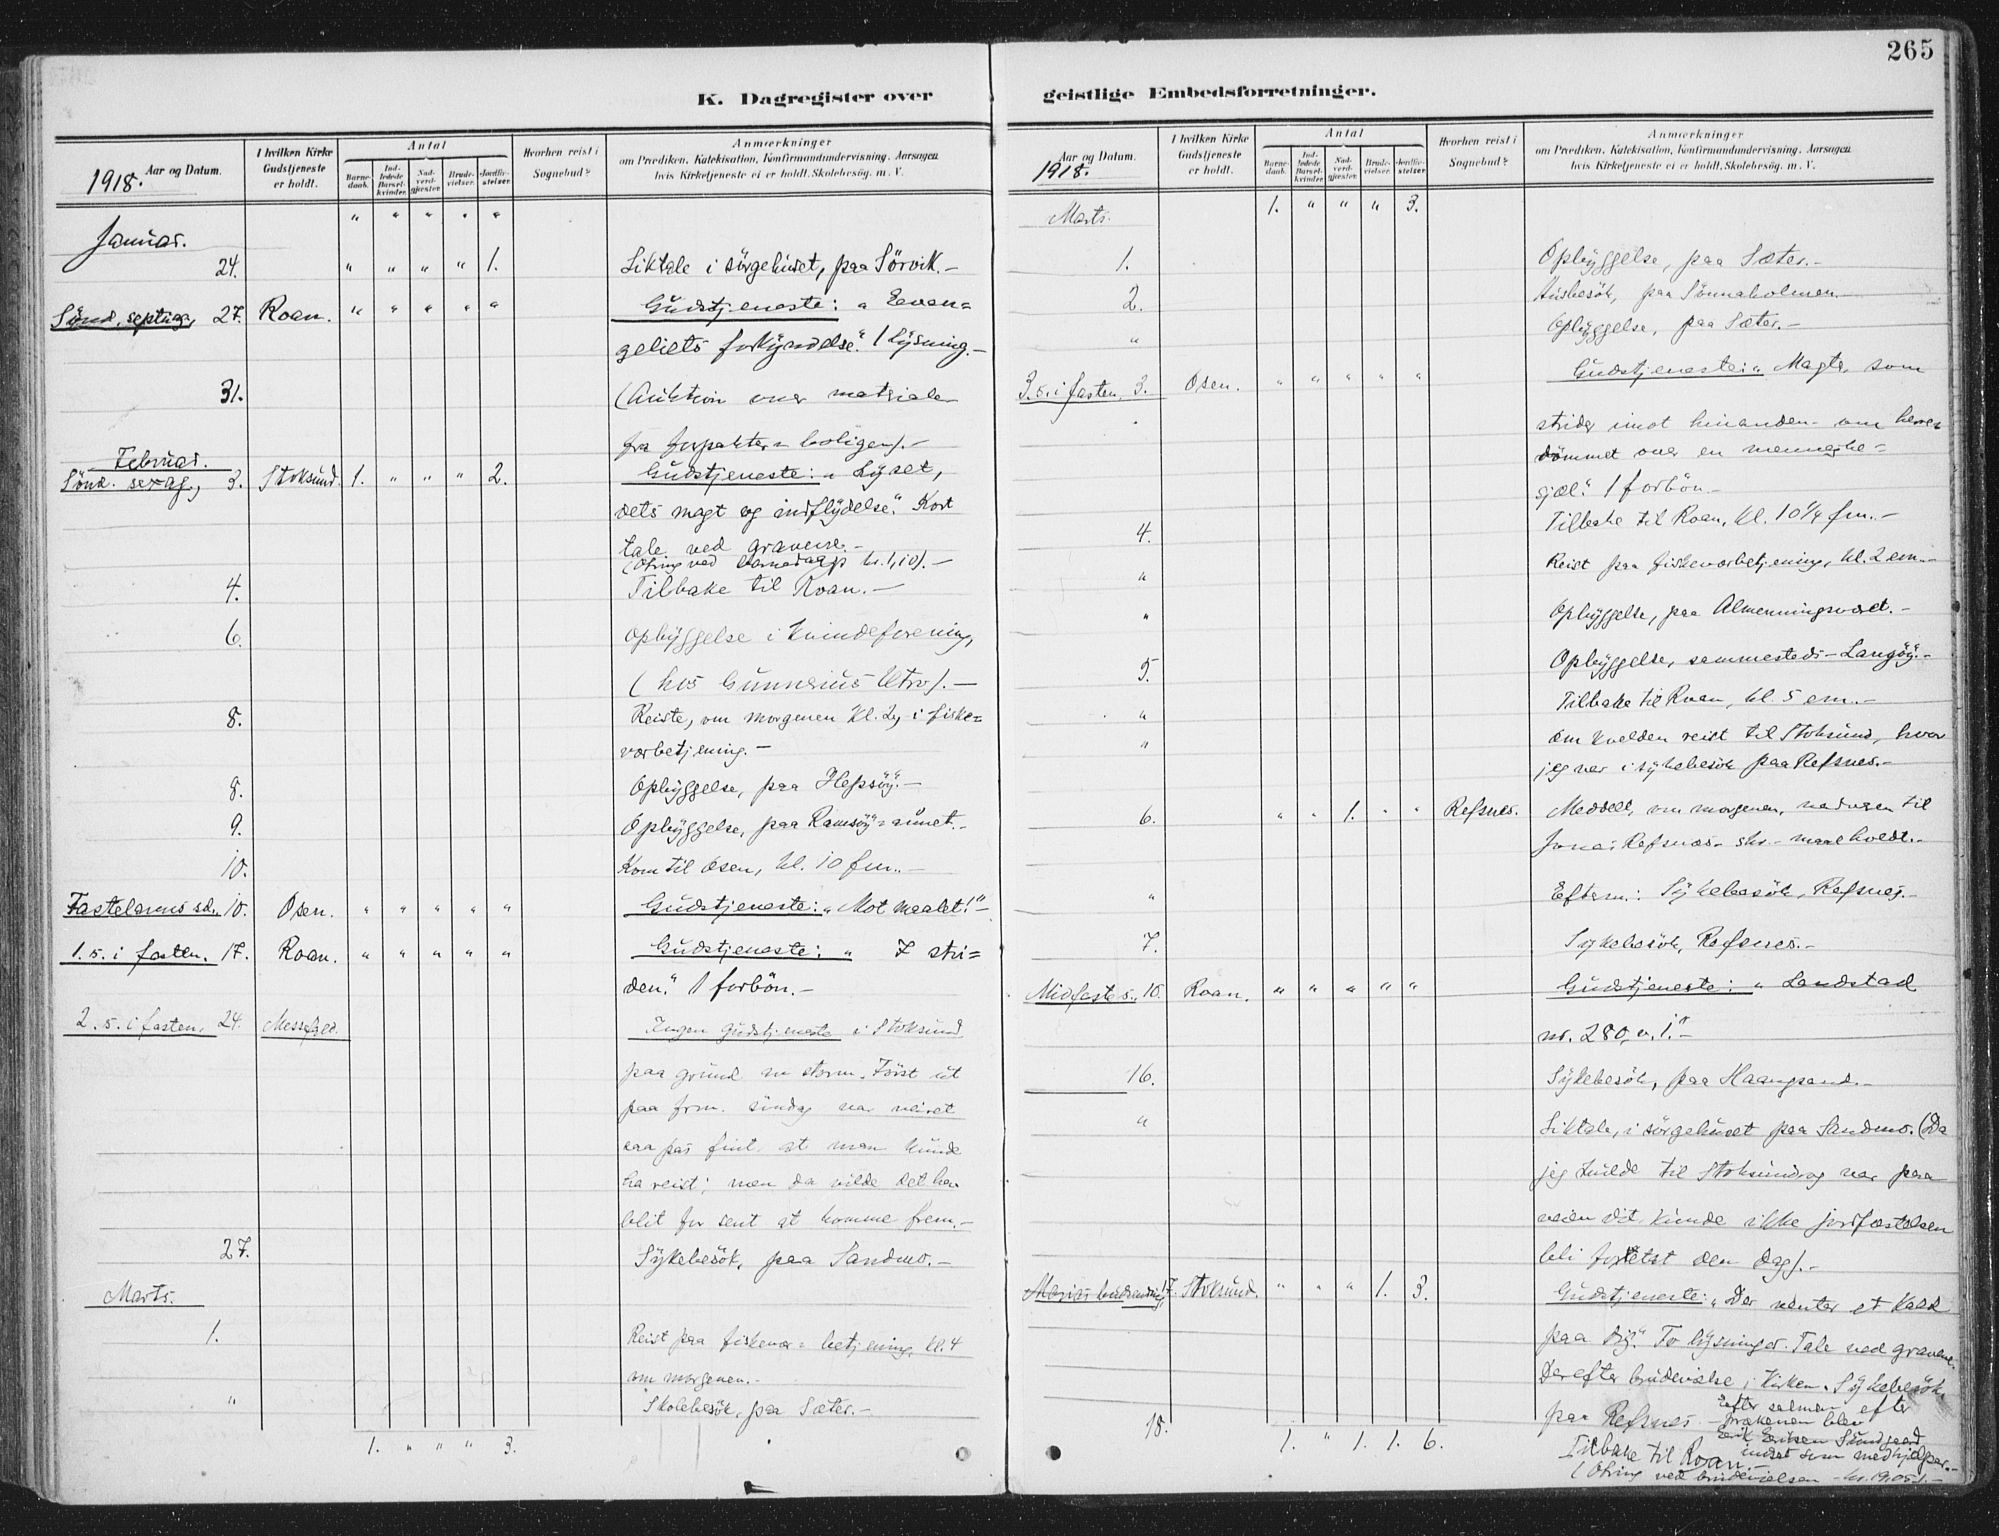 265
K. Dagregister over
Aar og Datum.
1918.
I hvilken Kirke Gudstjeneste er holdt.
Antal
Barne-daab.
Ind-ledede Barsel-kvinder.
Nad-verd-gjæster.
Brude-vielser.
Jordfæ-stelser.
Hvorhen reist i Sognebud?
Anmærkninger
om Prædiken, Katekisation, Konfirmandundervisning, Aarsagen
hvis Kirketjeneste ei er holdt, Skolebesøg. m. V.
" " " " "
Januar.
24. " " " " 1. Liktale i sörgehuset, paa Sörvik.-
Sönd. septuag. 27. Roan. " " " " " Gudstjeneste: " Evan=
geliets forkyndelse." 1 lysning.-
31. (Auktion over materialer
fra forpakter= boligen).-
Februar.
Sönd. sexag., 3. Stoksund. 1. " " " 2. Gudstjeneste: " Lyset,
dets magt og indflydelse." Kort
tale ved gravene.-
(Ofring ved barnedaap kr. 1,10).-
4. Tilbake til Roan.-
6. Opbyggelse i kvindeforening,
(hos Gunnerius Utro).-
8. Reiste, om morgenen kl. 2, i fiske=
værbetjening.-
8. Opbyggelse, paa Hepsöy.-
9. Opbyggelse, paa Ramsöy=sunet.-
10. Kom til Osen, kl. 10 fm.-
Fastelavns sd., 10. Osen. " " " " " Gudstjeneste: " Mot maalet!"-
1. s. i fasten. 17. Roan. " " " " " Gudstjeneste: " I stri=
den." 1 forbön.-
2. s. i fasten. 24. Messefald. Ingen gudstjeneste i Stoksund
paa grund av storm. Först ut
paa frm. söndag var veiret
saapas fint, at man kunde
ha reist; men da vilde det ha
blit for sent at komme frem.-
27. Sykebesök, paa Sandmo.-
Marts.
1. Reist paa fiskevær= betjening, kl. 4
om morgenen.-
" Skolebesök, paa Sæter.-
1. " " " 3.
geistlige Embedsforretninger.
Aar og Datum.
1918.
I hvilken Kirke Gudstjeneste er holdt.
Antal
Barne-daab.
Ind-ledede Barsel-kvinder.
Nad-verd-gjæster.
Brude-vielser.
Jordfæ-stelser.
Hvorhen reist i Sognebud?
Anmærkninger
om Prædiken, Katekisation, Konfirmandundervisning, Aarsagen
hvis Kirketjeneste ei er holdt, Skolebesög. m. V.
Marts. 1. " " " 3.
1. Opbyggelse, paa Sæter.-
2. Husbesök, paa Sönnaholmen.
" Opbyggelse, paa Sæter.-
3. s. i fasten, 3. Osen. " " " " " Gudstjeneste: " Magter, som
strider imot hinanden om herre=
dömmet over en menneske=
sjæl." 1 forbön.-
4. Tilbake til Roan, kl. 10 1/4 fm.-
" Reist paa fiskeværbetjening, kl. 2 em.-
" Opbyggelse, paa Almenningsværet.-
5. Opbyggelse, sammesteds - Langöy.-
" Tilbake til Roan, kl. 5 em.-
" Om kvelden reist til Stoksund, hvor
jeg var i sykebesök paa Refsnes.-
6. " " 1. " " Refsnes. Meddelt, om morgenen, nadveren til
Jonas Refsnes.-
" Efterm.: Sykebesök, Refsnes.-
7. Sykebesök, Refsnes.-
Midfaste s., 10. Roan. " " " " " Gudstjeneste: " Landstad
nr. 280, v. 1."-
16. Sykebesök, paa Haangsand.-
" Liktale, i sörgehuset paa Sandmo. (Da
jeg skulde til Stoksund og var paa
veien dit, kunde ikke jordfæstelsen
bli foretat den dag).-
Mariæ budskapsdag, 17. Stoksund. " " " 1. 3. Gudstjeneste: " Der venter et kald
paa dig." To lysninger. Tale ved gravene.
Derefter brudevielse i kirken. Sykebesök,
paa Refsnes.- Efter salmen efter
prækenen blev
Erik Eriksen Sundgaard
indsat som medhjelper.-
18. Tilbake til Roan.-
(Ofring ved brudevielsen - kr. 19,05).-
1. " 1. 1. 6.